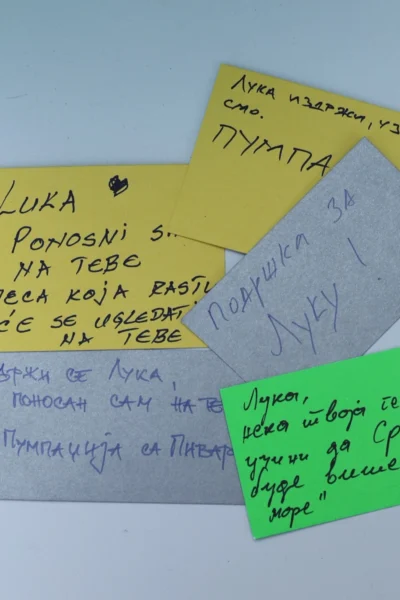 Лука издржи, уз
смо.
ПУМПА
LUKA
PONOSNI S
NA TEBE
DECA KOJA RASTU
ĆE SE UGLEDATI
NA TEBE
ПОДРШКА ЗА
Луку!
држи се Лука,
поносан сам на те
Пумпаџија са Пивар
Лука,
нека твоја
учини да Ср
буде више
море"